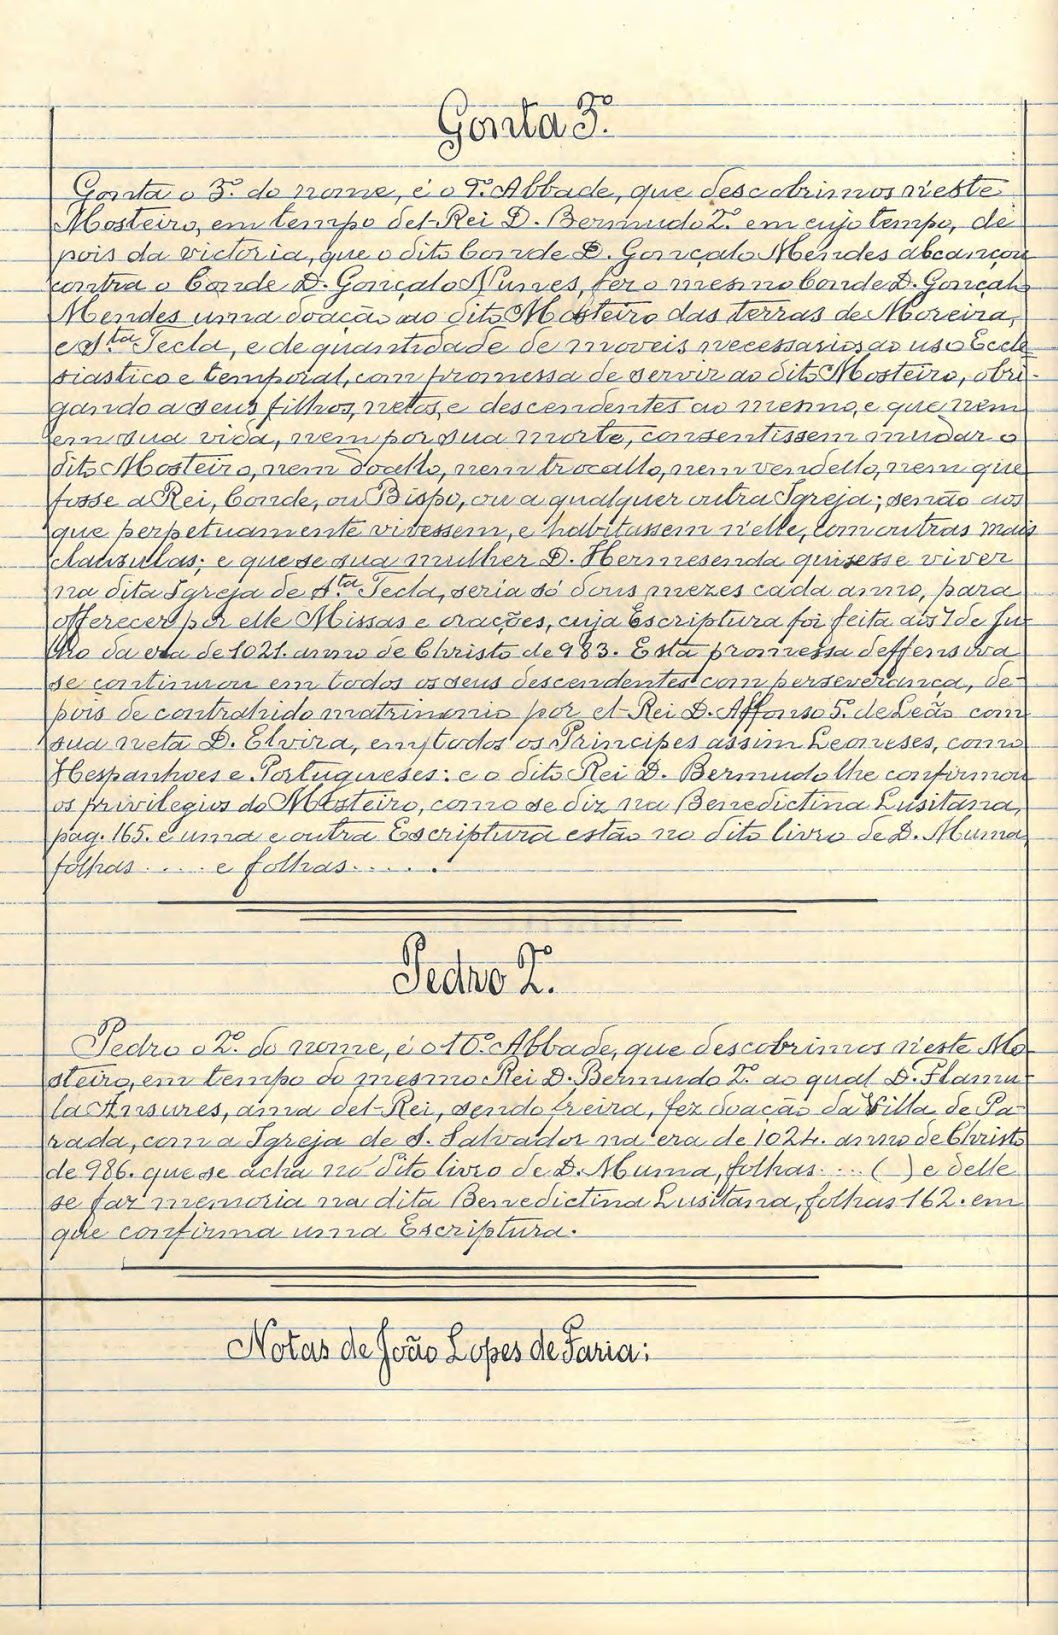 Gonta 3.º
Gonta o 3.º do nome, é o 9.º Abbade, que descobrimos n'este
Mosteiro, em tempo del-Rei D. Bermudo 2.º em cujo tempo, de
pois da victoria, que o dito Conde D. Gonçalo Mendes alcançou
contra o Conde D. Gonçalo Nunes, fez o mesmo Conde D. Gonçalo
Mendes uma doação ao dito Mosteiro das terras de Moreira,
e S.ta Tecla, e de quantidade de moveis necessarios ao uso Eccle
siastico e temporal, com promessa de servir ao dito Mosteiro, obri-
gando a seus filhos, netos, e descendentes ao mesmo, e que nem
em sua vida, nem por sua morte, consentissem mudar o
dito Mosteiro, nem doallo, nem trocallo, nem vendello, nem que
fosse a Rei, Conde, ou Bispo, ou a qualquer outra Igreja; senão aos
que perpetuamente vivessem, e habitassem n'elle, com outras mais
clausulas; e que se sua mulher D. Hermesenda quisesse viver
na dita Igreja de S.ta Tecla, seria só dous mezes cada anno, para
offerecer por elle Missas e orações, cuja Escriptura foi feita aos 7 de Ju
lho da era de 1021. anno de Christo de 983. Esta promessa deffensiva
se continuou em todos os seus descendentes com perseverança, de-
pois de contrahido matrimonio por el-Rei D. Affonso 5.º de Leão com
sua neta D. Elvira, em todos os Principes assim Leoneses, como
Hespanhoes e Portugueses: e o dito Rei D. Bermudo lhe confirmou
os privilegios do Mosteiro, como se diz na Benedictina Lusitana,
pag. 165. e uma e outra Escriptura estão no dito livro de D. Muma,
folhas ..... e folhas ......
Pedro 2.º
Pedro o 2.º do nome, é o 10.º Abbade, que descobrimos n'este Mo-
steiro, em tempo do mesmo Rei D. Bermudo 2.º ao qual D. Flamu-
la Ansures, ama del-Rei, sendo freira, fez doação da Villa de Pa-
rada, com a Igreja de S. Salvador na era de 1024. anno de Christo
de 986. que se acha no dito livro de D. Muma, folhas .... ( ) e delle
se faz memoria na dita Benedictina Lusitana, folhas 162. em
que confirma uma Escriptura.
Notas de João Lopes de Faria: